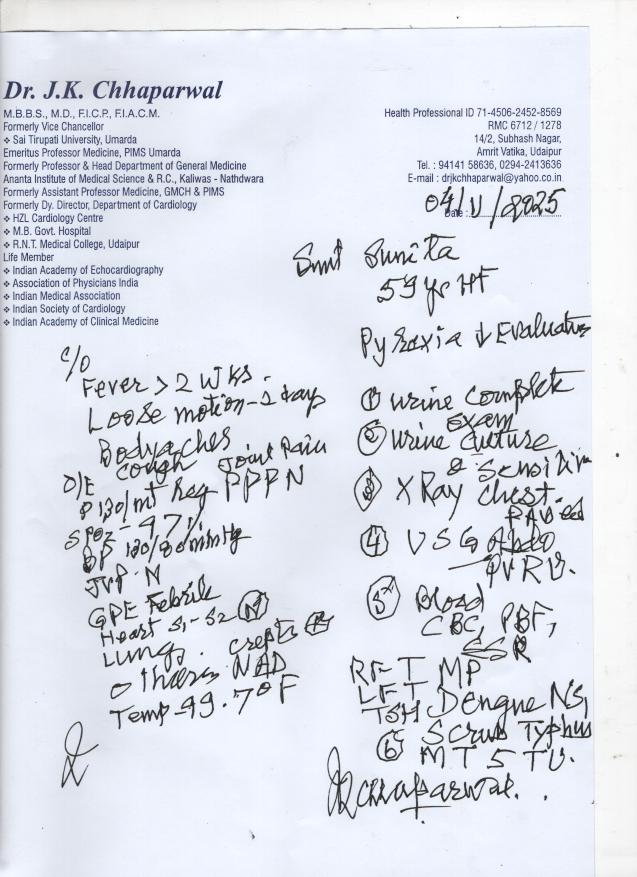 Dr. J.K. Chhaparwal
M.B.B.S., M.D., F.I.C.P., F.I.A.C.M.
Formerly Vice Chancellor
❖ Sai Tirupati University, Umarda
Emeritus Professor Medicine, PIMS Umarda
Formerly Professor & Head Department of General Medicine
Ananta Institute of Medical Science & R.C., Kaliwas - Nathdwara
Formerly Assistant Professor Medicine, GMCH & PIMS
Formerly Dy. Director, Department of Cardiology
❖ HZL Cardiology Centre
❖ M.B. Govt. Hospital
❖ R.N.T. Medical College, Udaipur
Life Member
❖ Indian Academy of Echocardiography
❖ Association of Physicians India
❖ Indian Medical Association
❖ Indian Society of Cardiology
❖ Indian Academy of Clinical Medicine
Health Professional ID 71-4506-2452-8569
RMC 6712 / 1278
14/2, Subhash Nagar,
Amrit Vatika, Udaipur
Tel. : 94141 58636, 0294-2413636
E-mail : drjkchhaparwal@yahoo.co.in
Date : 04/11/2025
Smt Sunita
59 yr HF
Pyrexia ↓ Evaluation
C/O
Fever > 2 wks.
Loose motion - 2 days
Bodyaches
cough Joint Pain
O/E
P 130/mt Reg PPPN
SPO2 - 97%
BP 130/80 mmHg
JVP - N
GPE Febrile
Heart S1-S2 (N)
Lungs. crepts
Others NAD
Temp - 99.7°F
① Urine complete
Exam
② Urine culture
& Sensitivity
③ X Ray chest -
PA view
④ USG Abdo
PVRU.
⑤ Blood
CBC, PBF,
ESR
RFT MP
LFT Dengue NS1
TSH Scrub Typhus
⑥ MT 5 TU.
JKChhaparwal.